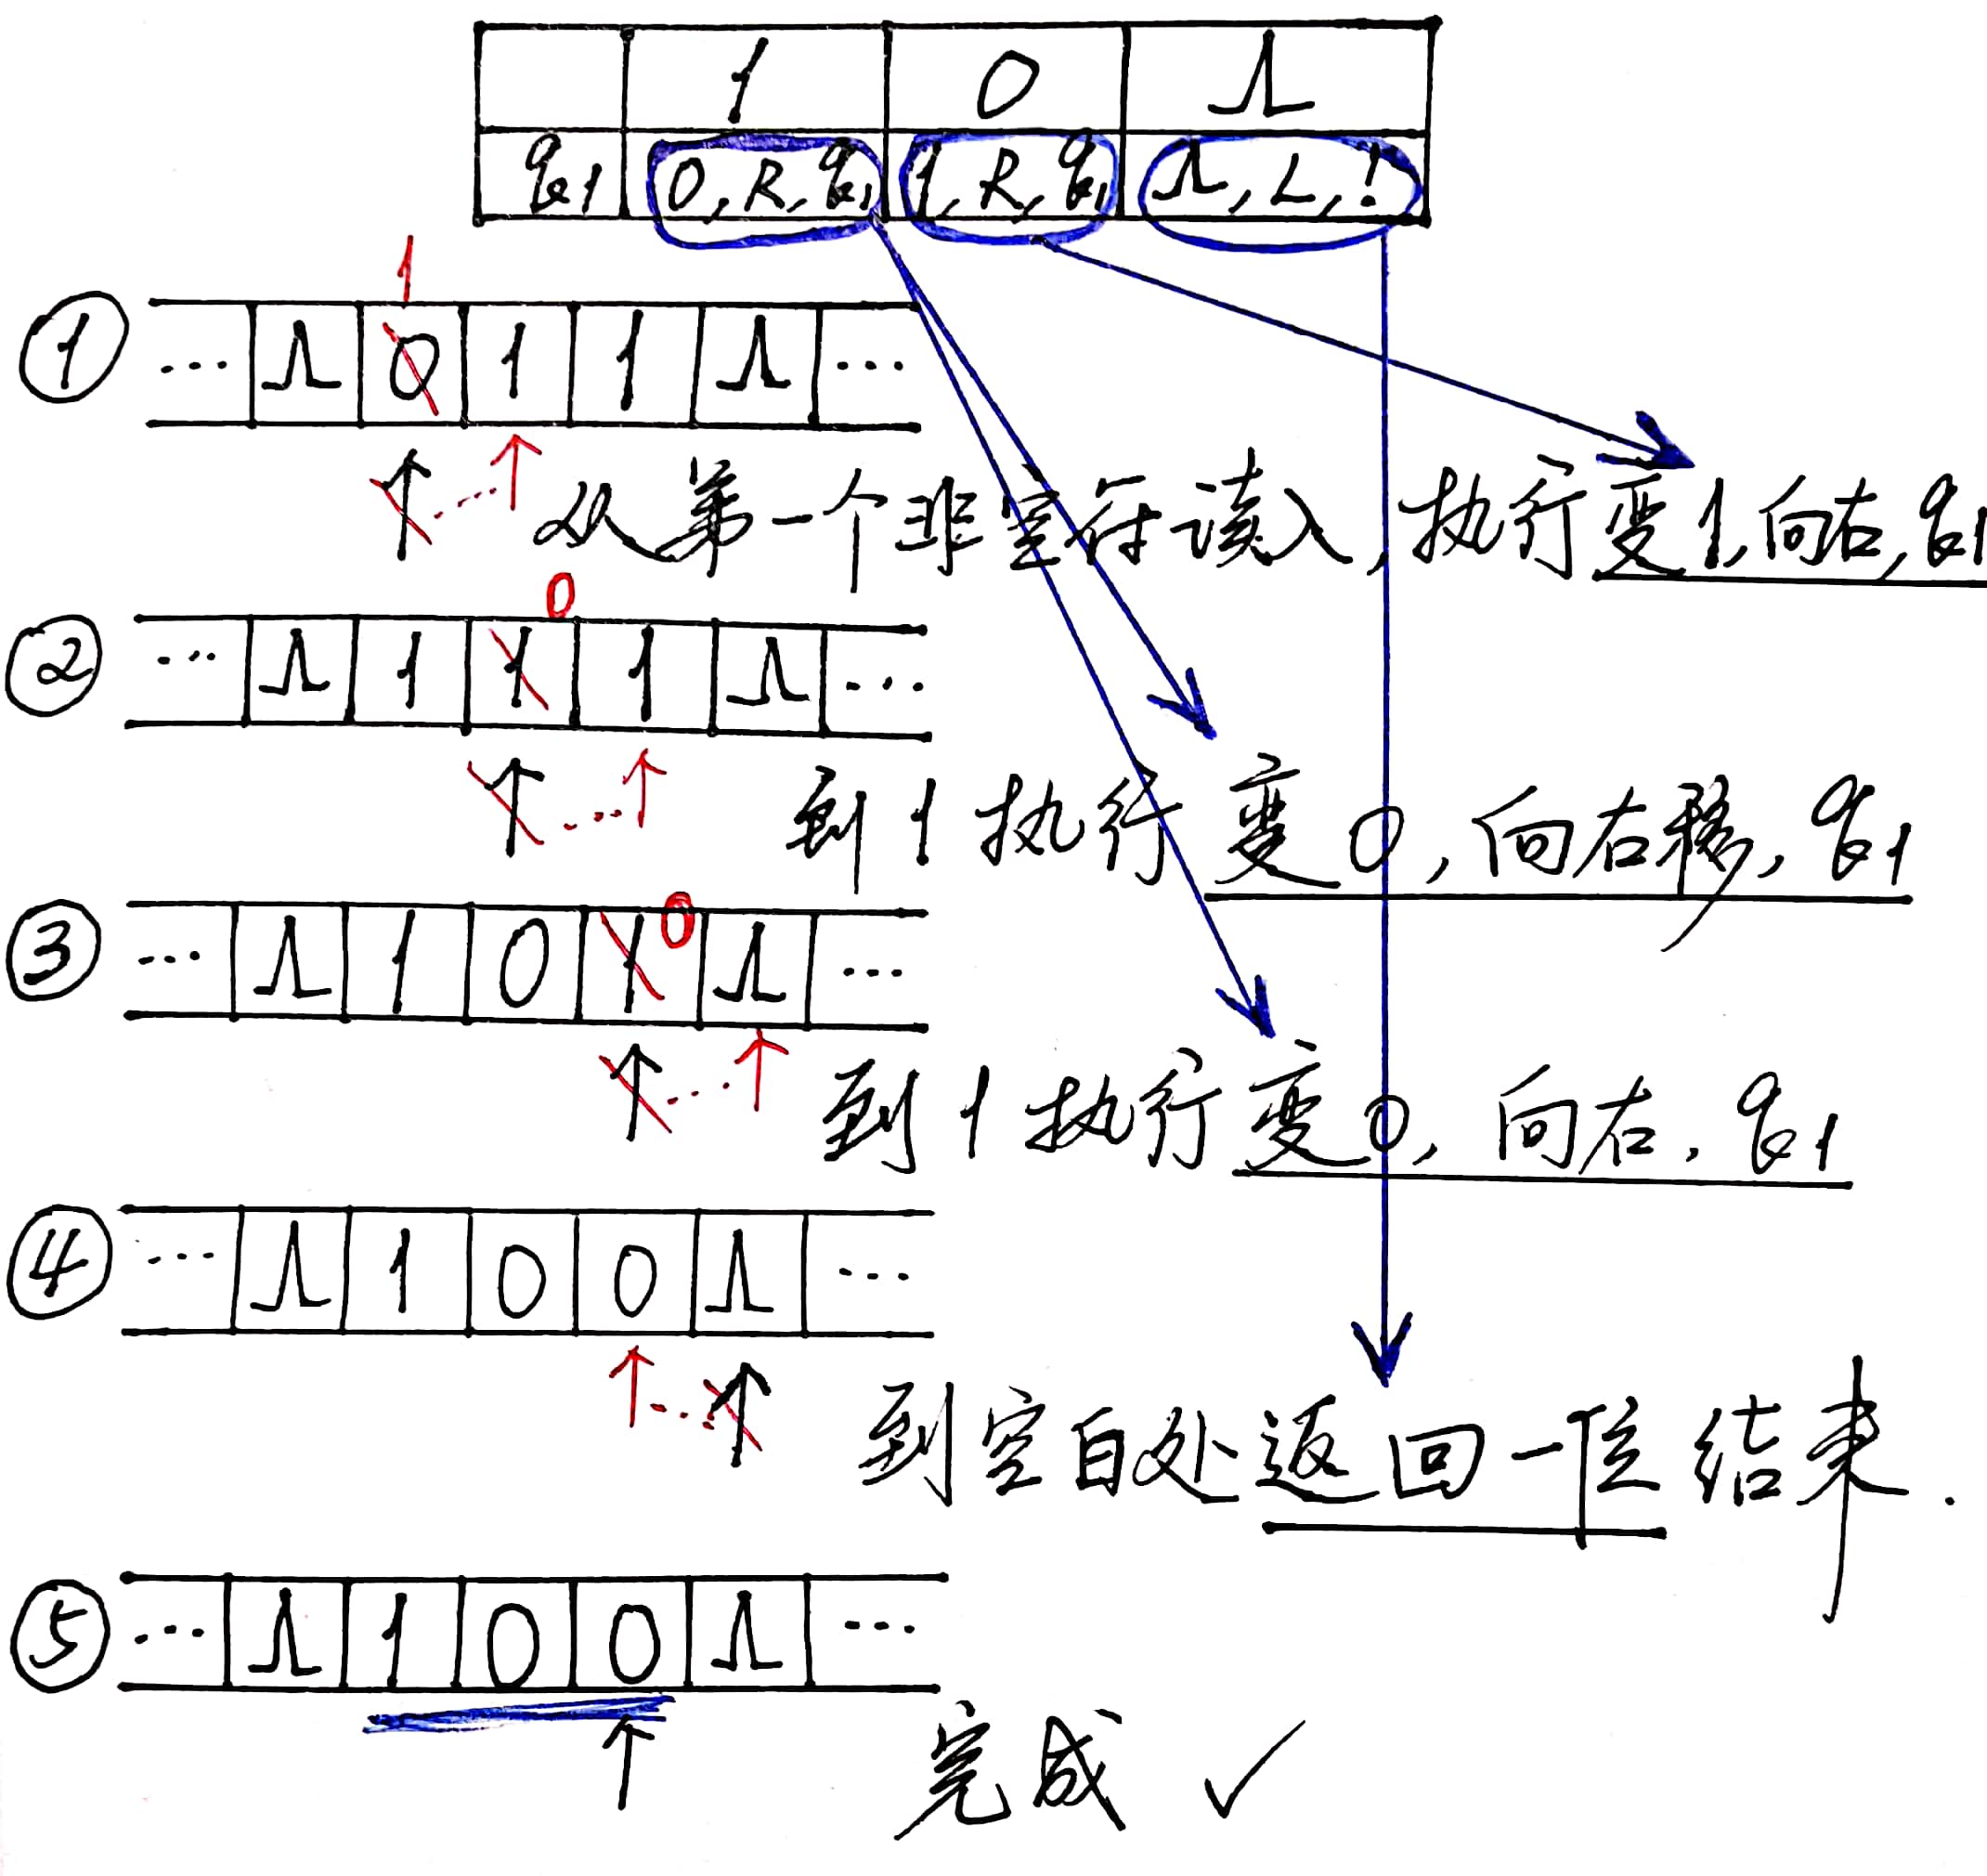 1 0 Λ
q1 0,R,q1 1,R,q1 Λ,L,!
1
① ... Λ 0 1 1 Λ ...
从第一个非空符读入,执行变1,向右,q1
0
② ... Λ 1 1 1 Λ ...
到1执行变0,向右移,q1
③ ... Λ 1 0 1 0 Λ ...
到1执行变0,向右.q1
④ ... Λ 1 0 0 Λ ...
到空白处返回一位结束.
⑤ ... Λ 1 0 0 Λ ...
完成 ✓